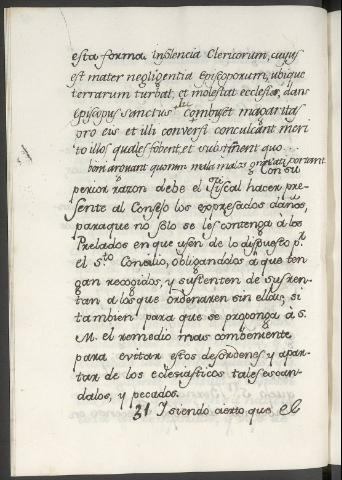 esta forma insolencia Clericorum, cujus
est mater negligentia Episcoporum, ubique
terrarum turbat, et molestat ecclesias, dans
Episcopus Sanctus
pro eis et illi conversi conculcant meri
to illos quales fobent, et sustinent quo
Con su
perior razon debe el Fiscal hacer pre-
sente al Consejo los expresados daños,
para que no solo se les contenga á los
Prelados en que usen de lo dispuesto pr
el Sto Concilio, obligandolos á que ten
gan recogidos, y sustenten de su ren-
tan á los que ordenaren sin ellas; si
tambien para que se proponga á S.
M. el remedio mas combeniente
para evitar estos desordenes y apar-
tar de los eclesiasticos tales escan-
dalos, y pecados.
31 Y siendo cierto que el